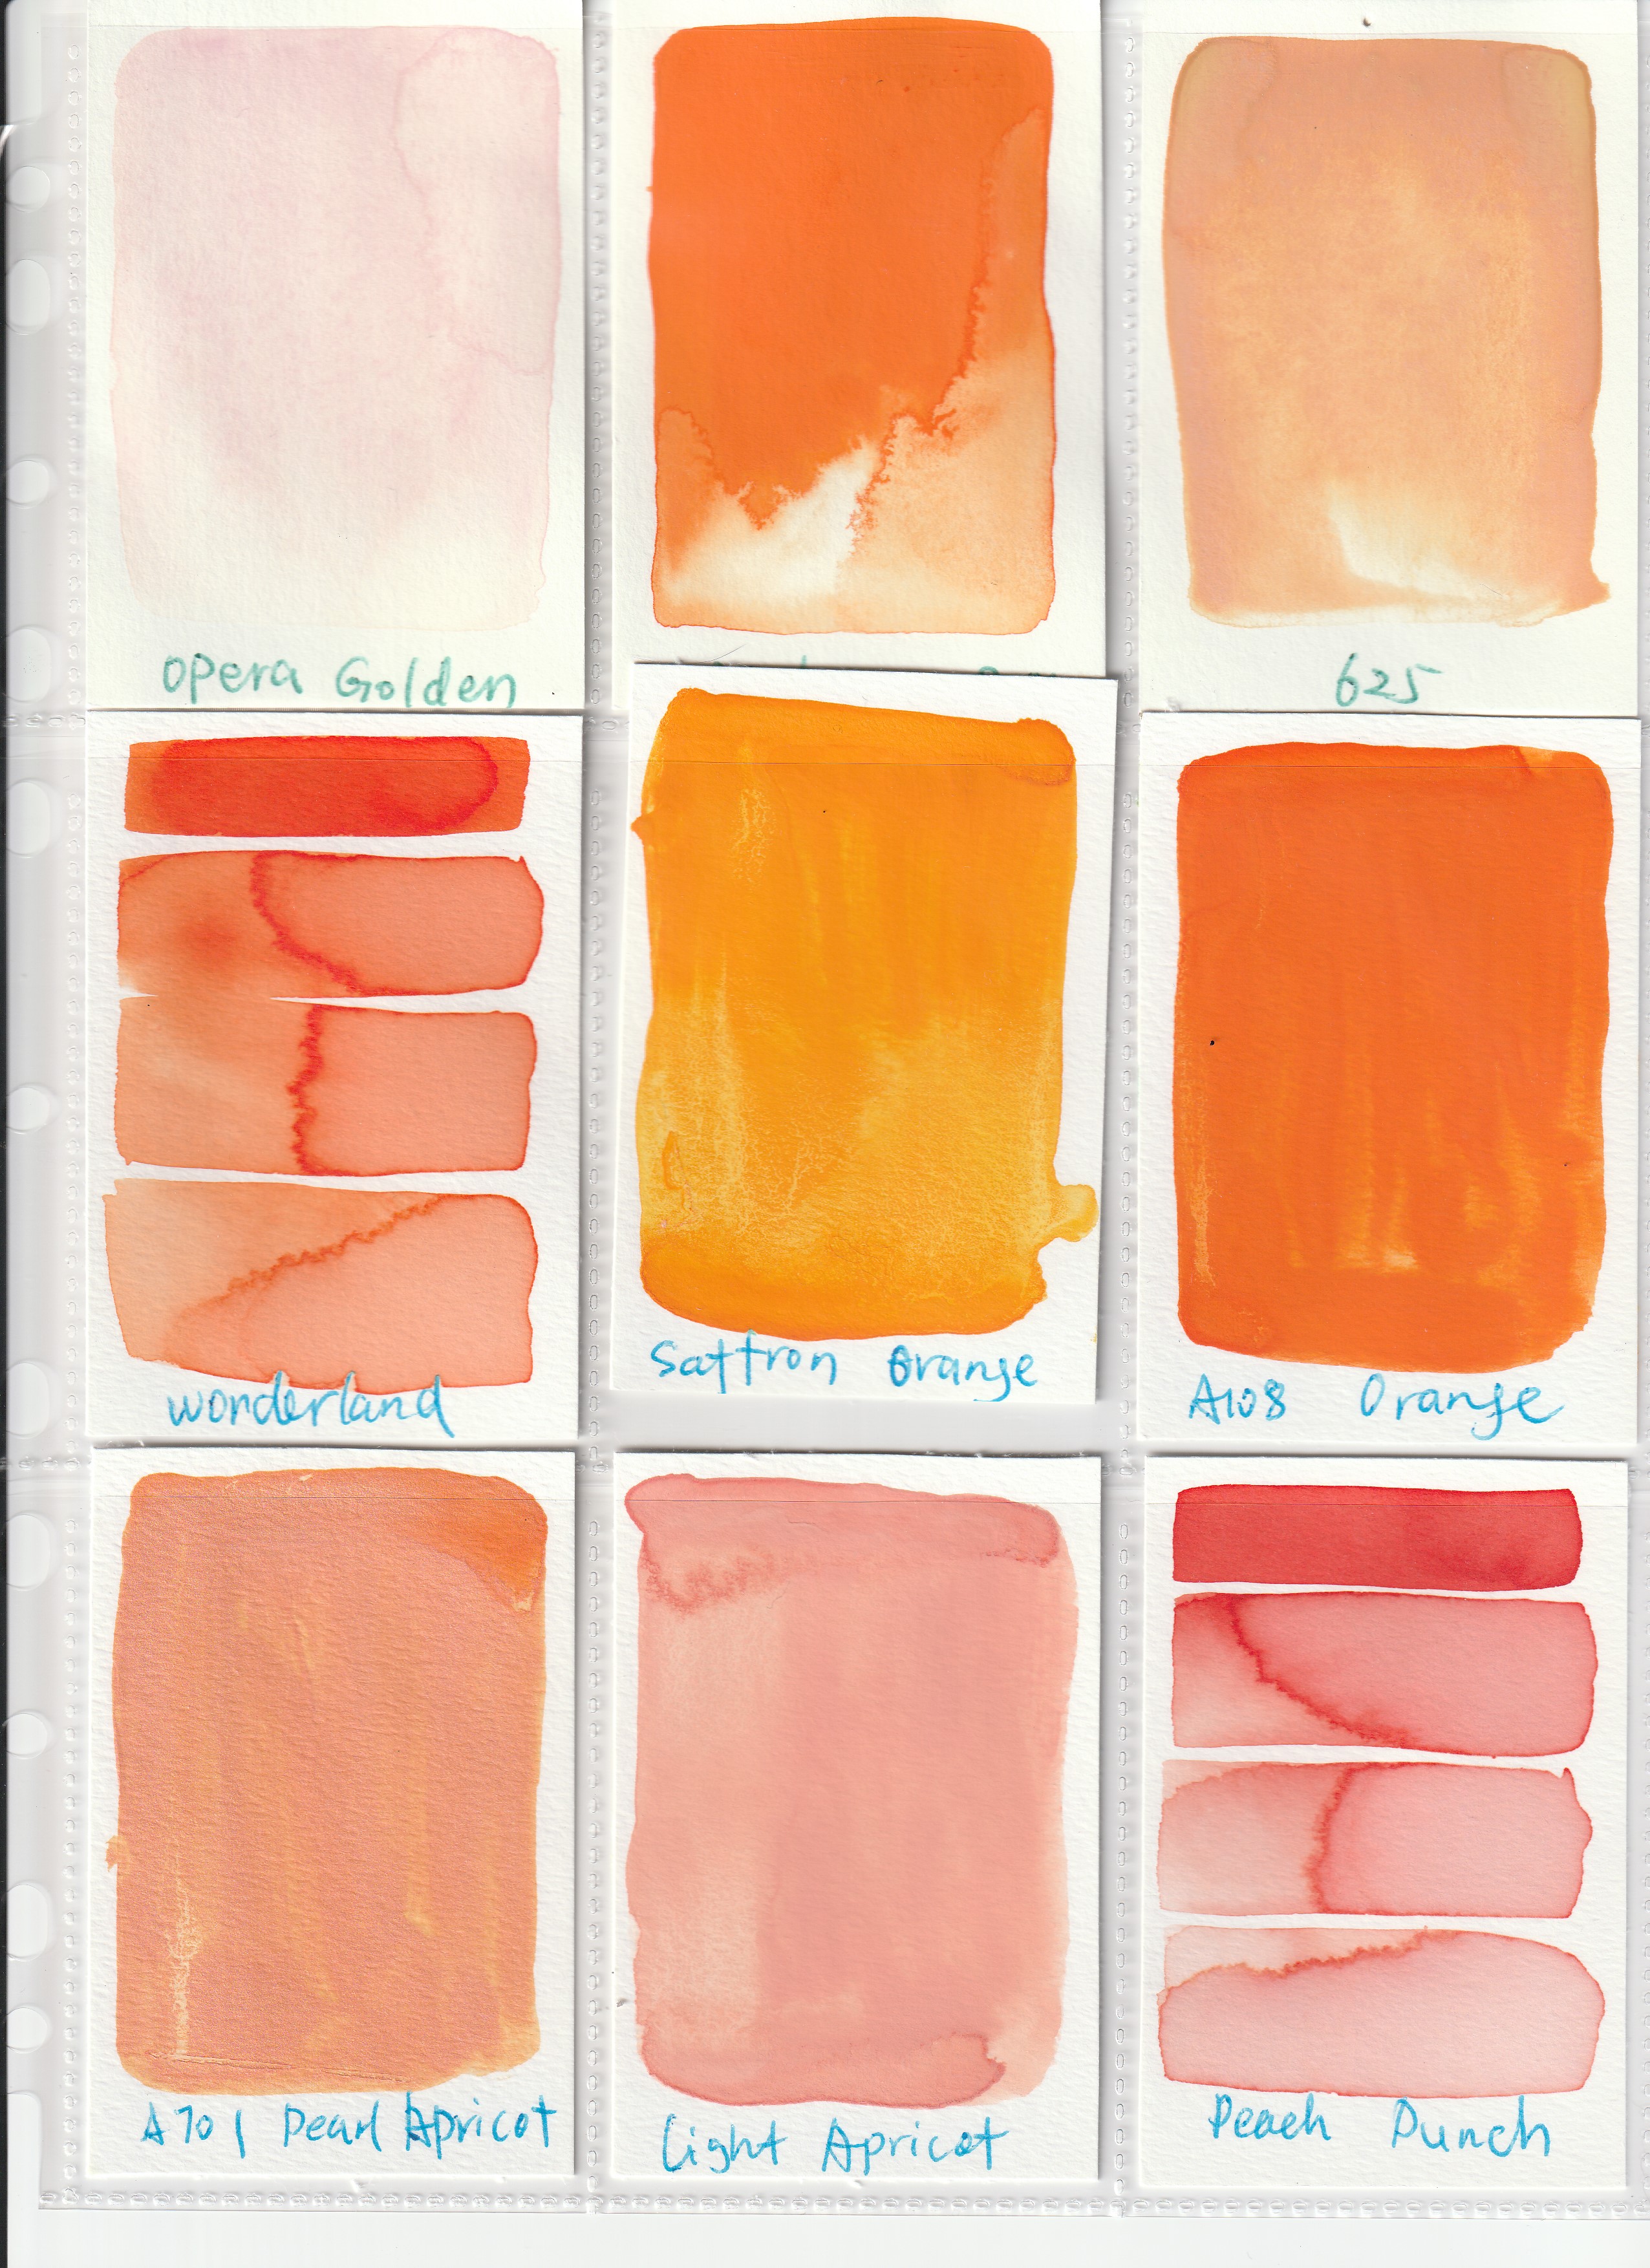 Opera Golden
625
Wonderland
Saffron Orange
A108 Orange
A701 Pearl Apricot
Light Apricot
Peach Punch